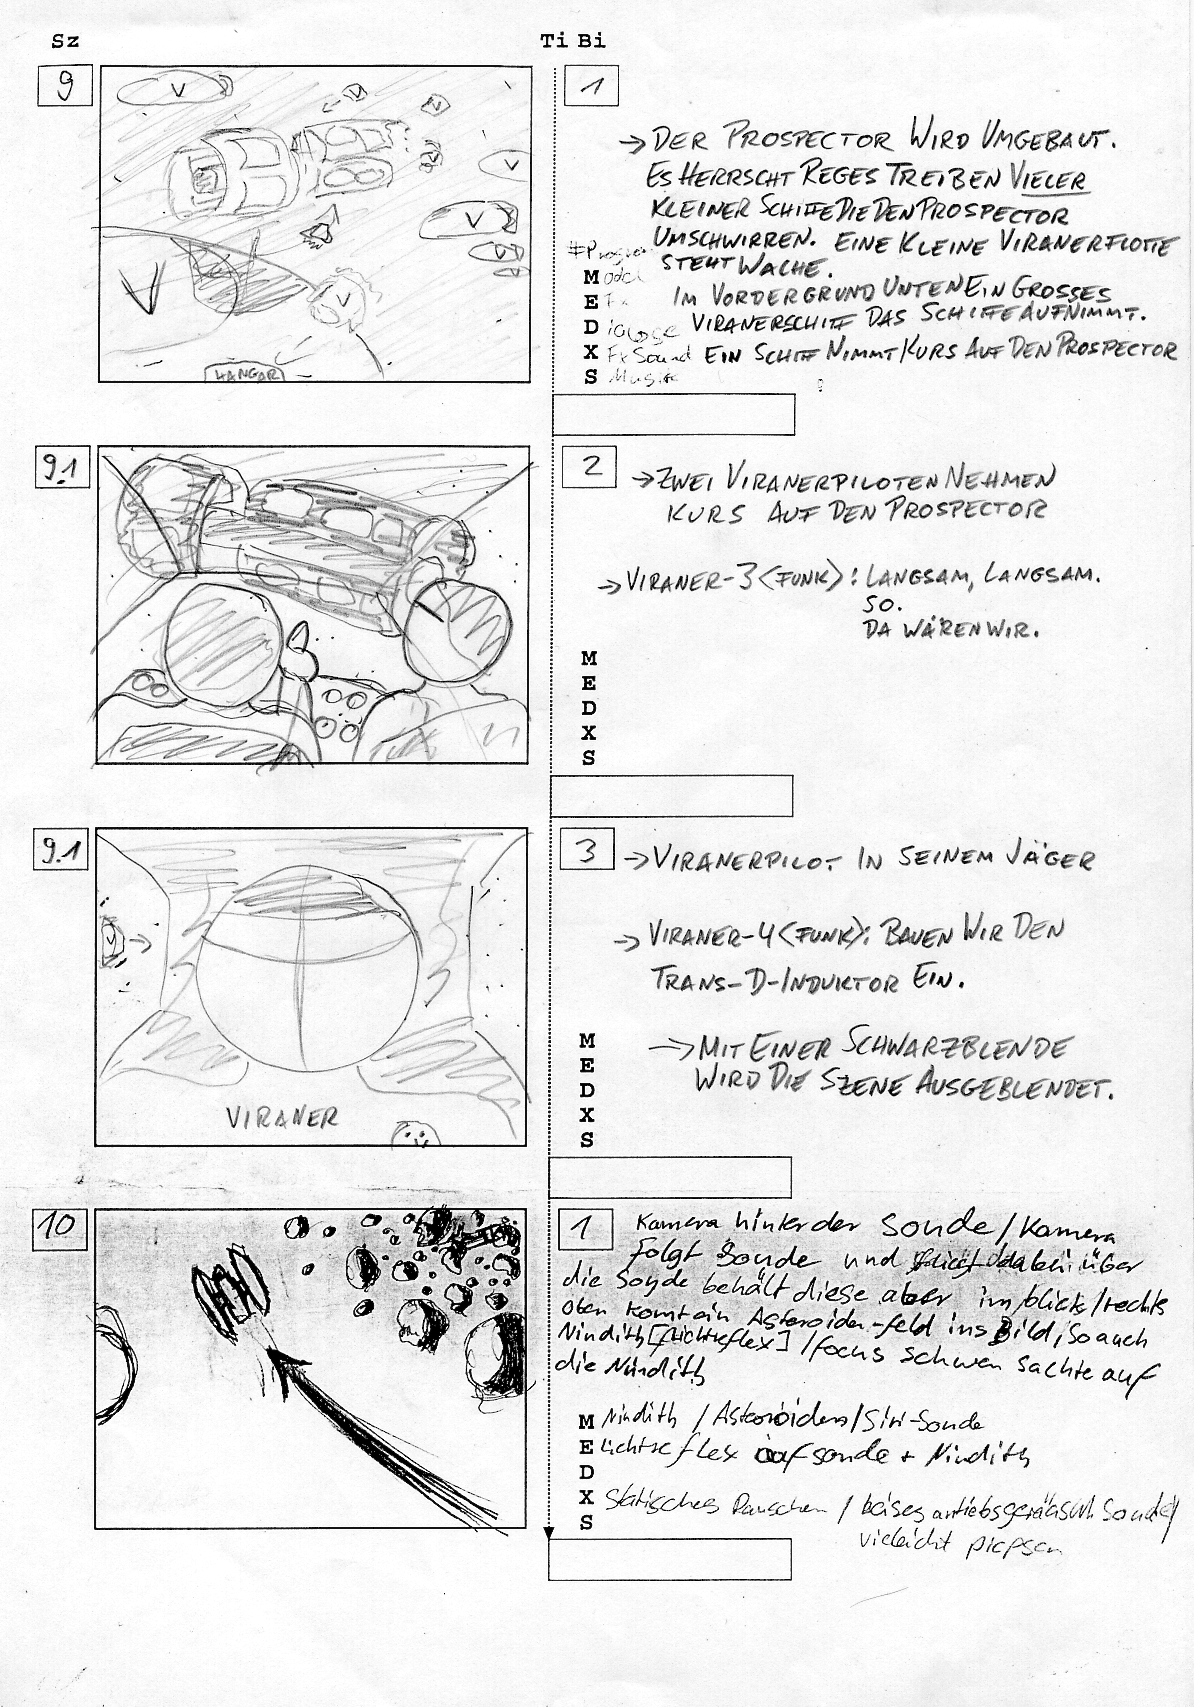 Sz Ti Bi
9
V
V
V
V
V
V
V
V
V
V
HANGAR
1
→ DER PROSPECTOR WIRD UMGEBAUT.
ES HERRSCHT REGES TREIBEN VIELER
KLEINER SCHIFFE DIE DEN PROSPECTOR
UMSCHWIRREN. EINE KLEINE VIRANERFLOTTE
STEHT WACHE.
IM VORDERGRUND UNTEN EIN GROSSES
VIRANERSCHIFF DAS SCHIFFE AUFNIMMT.
EIN SCHIFF NIMMT KURS AUF DEN PROSPECTOR
M odel
E Fx
D ialoge
X Fx Sound
S Musik
9.1
2
→ ZWEI VIRANERPILOTEN NEHMEN
KURS AUF DEN PROSPECTOR
→ VIRANER-3 <FUNK>: LANGSAM, LANGSAM.
SO.
DA WÄREN WIR.
M
E
D
X
S
9.1
V
VIRANER
3
→ VIRANERPILOT IN SEINEM JÄGER
→ VIRANER-4 <FUNK>: BAUEN WIR DEN
TRANS-D-INDUKTOR EIN.
→ MIT EINER SCHWARZBLENDE
WIRD DIE SZENE AUSGEBLENDET.
M
E
D
X
S
10
1
Kamera hinter der Sonde / Kamera
folgt Sonde und dabei über
die Sonde behält diese aber im blick / rechts
oben komt ein Asteroiden-feld ins Bild, so auch
Nindith [lichtreflex] / focus schwen sachte auf
die Nindith
M Nindith / Asteroiden / Siri-Sonde
E Lichtreflex auf sonde + Nindith
D
X Statisches Rauschen / leises antriebsgeräusch Sonde /
vieleicht piepsen
S